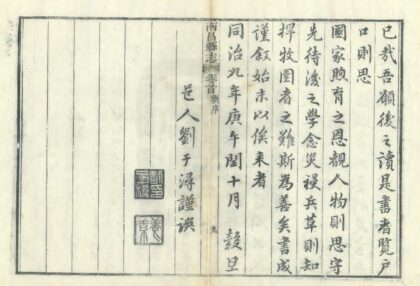 已哉吾願後之讀是書者覽戶
口則思
國家煦育之恩觀人物則思守
先待後之學念災祲兵革則知
捍牧圉者之難斯為善矣書成
謹叙始末以俟來者
同治九年庚午閏十月 穀旦
南昌縣志 卷首 劉序 九
邑人劉于潯謹譔